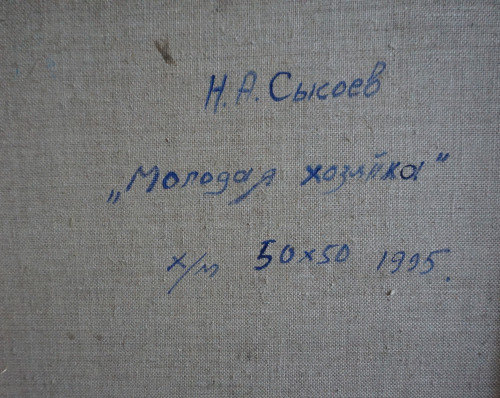 Н.А.Сысоев
„Молодая хозяйка"
х/м 50х50 1995.